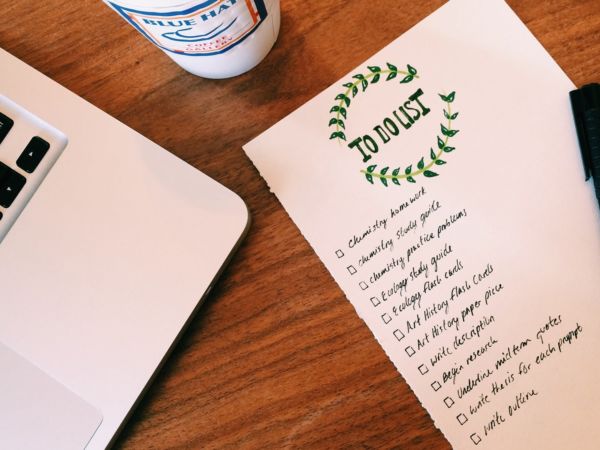 BLUE HAT
COFFEE
GALLERY
TO DO LIST
Chemistry homework
Chemistry study guide
Chemistry practice problems
Ecology study guide
Ecology flash cards
Art History Flash Cards
Art History paper piece
Write description
Begin research
Underline midterm quotes
Write thesis for each prompt
Write outline